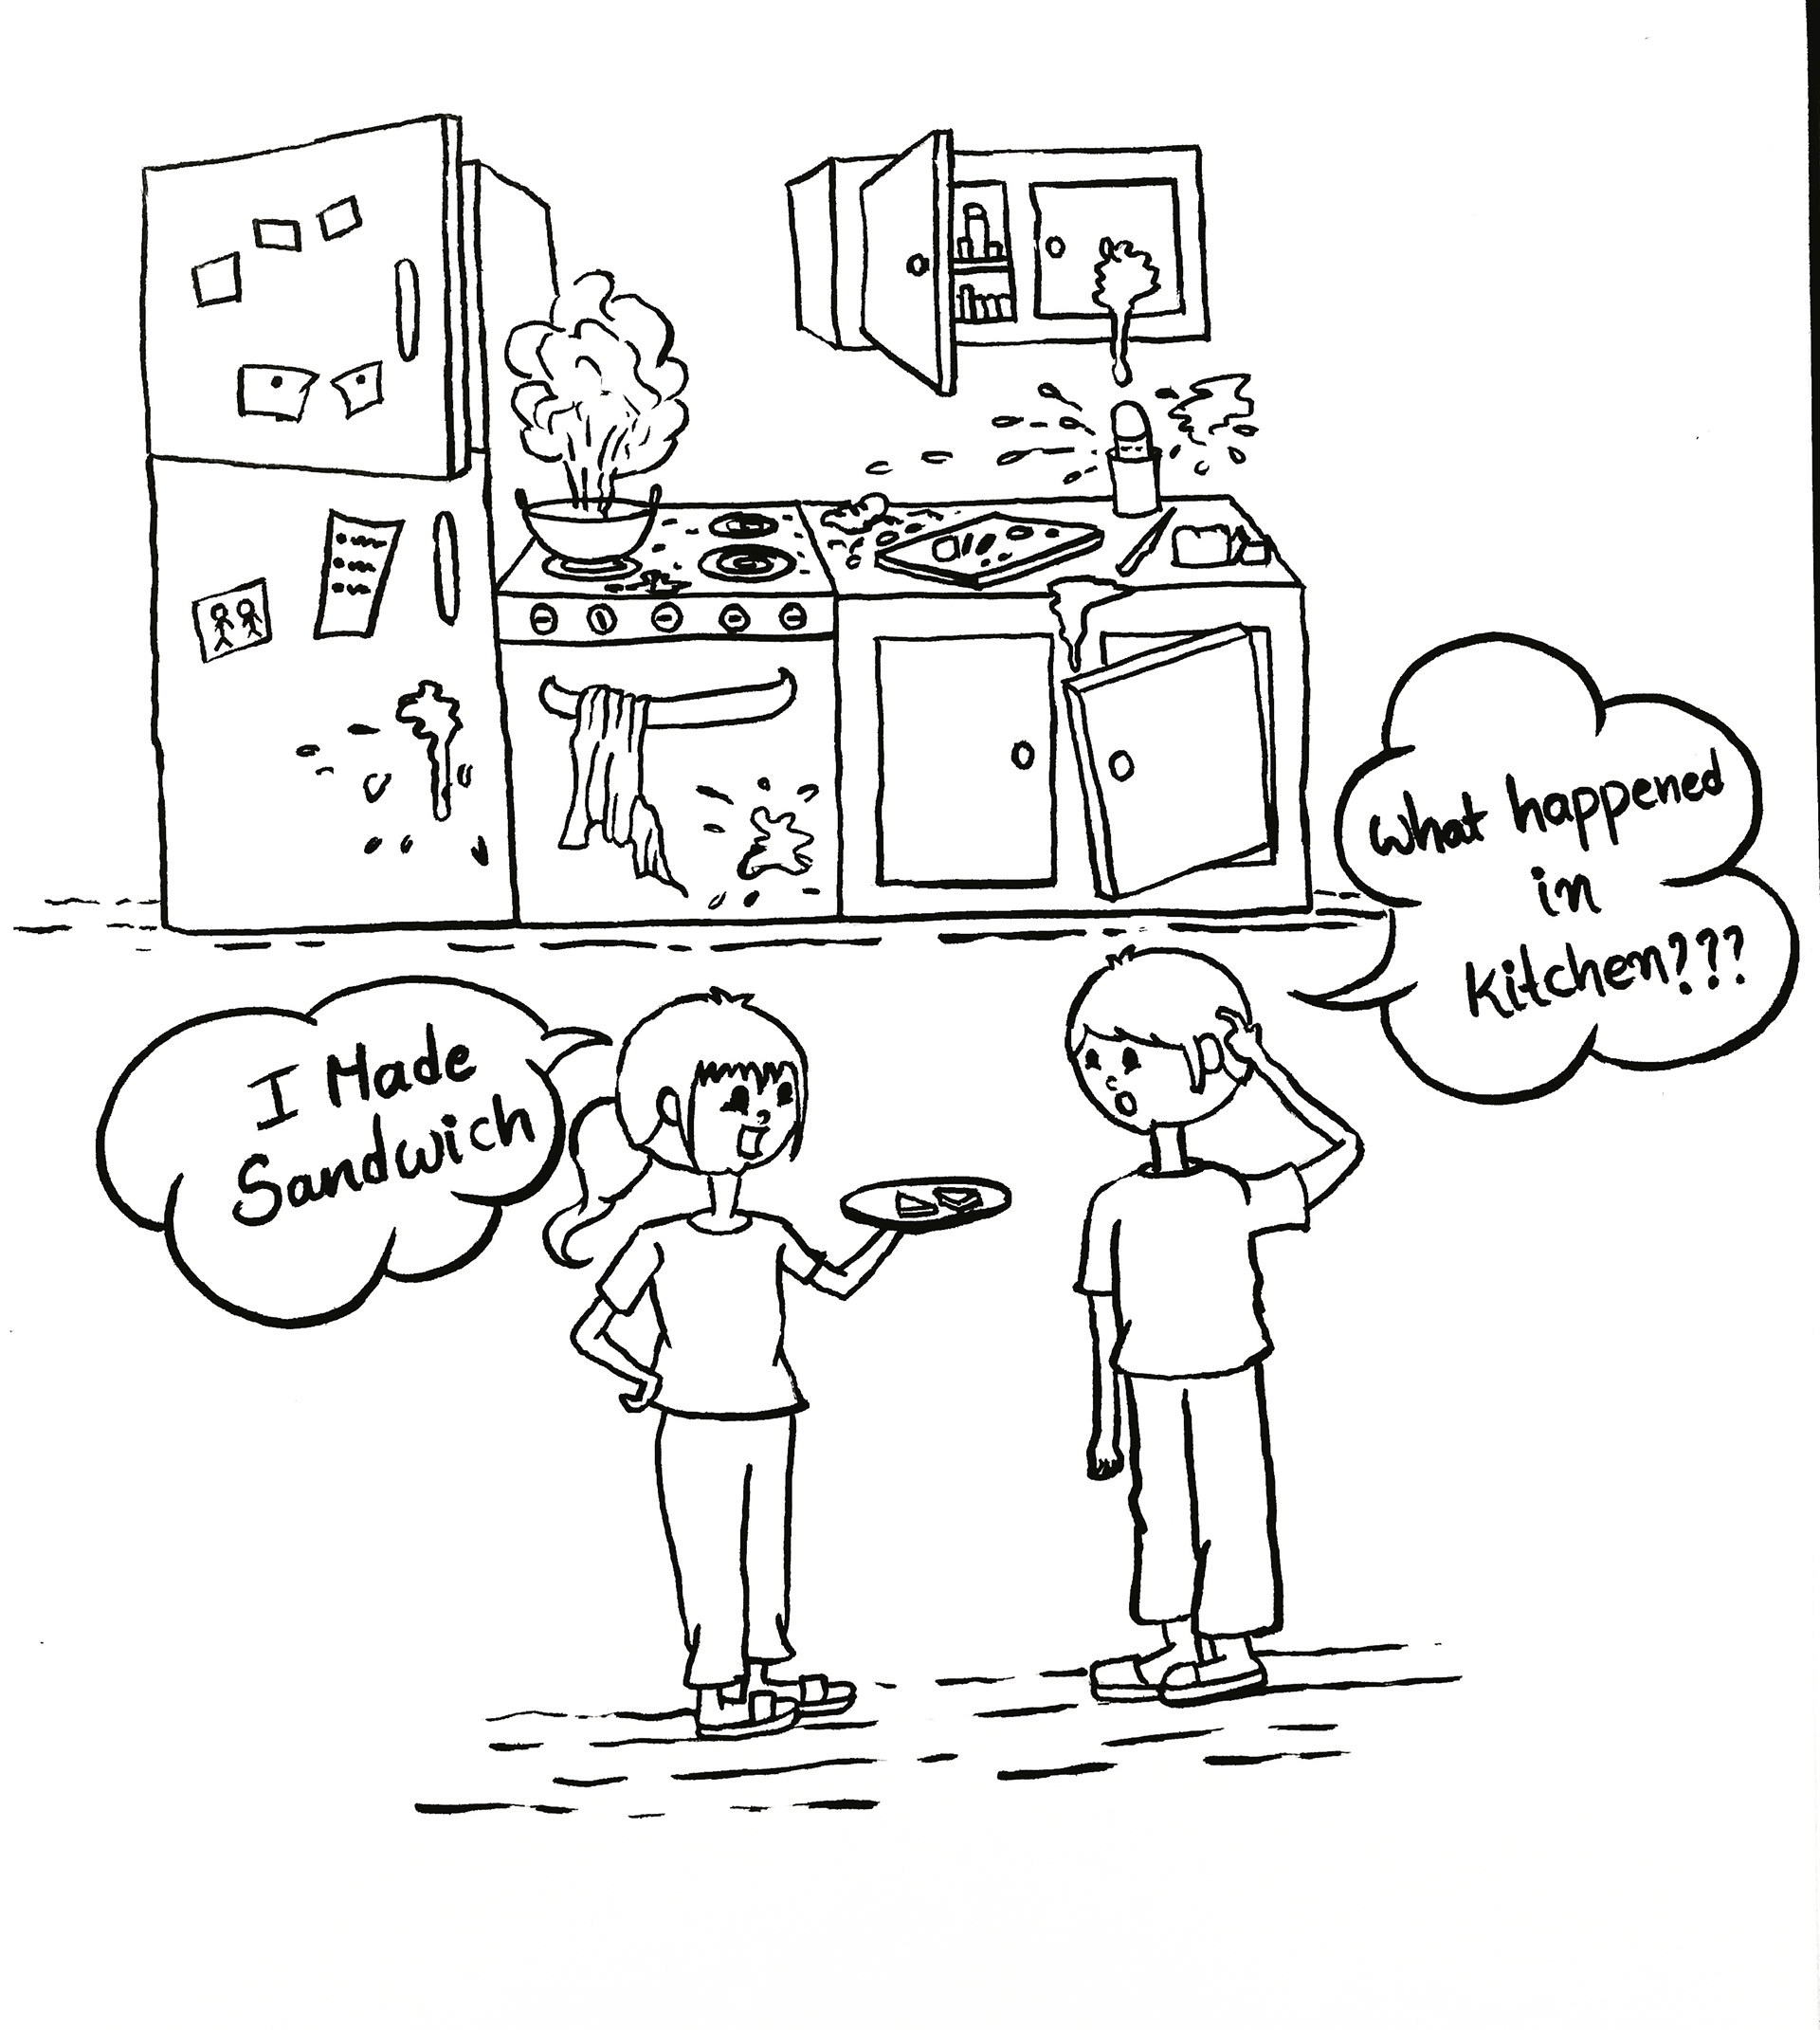 What happened
in
kitchen???
I Made
Sandwich